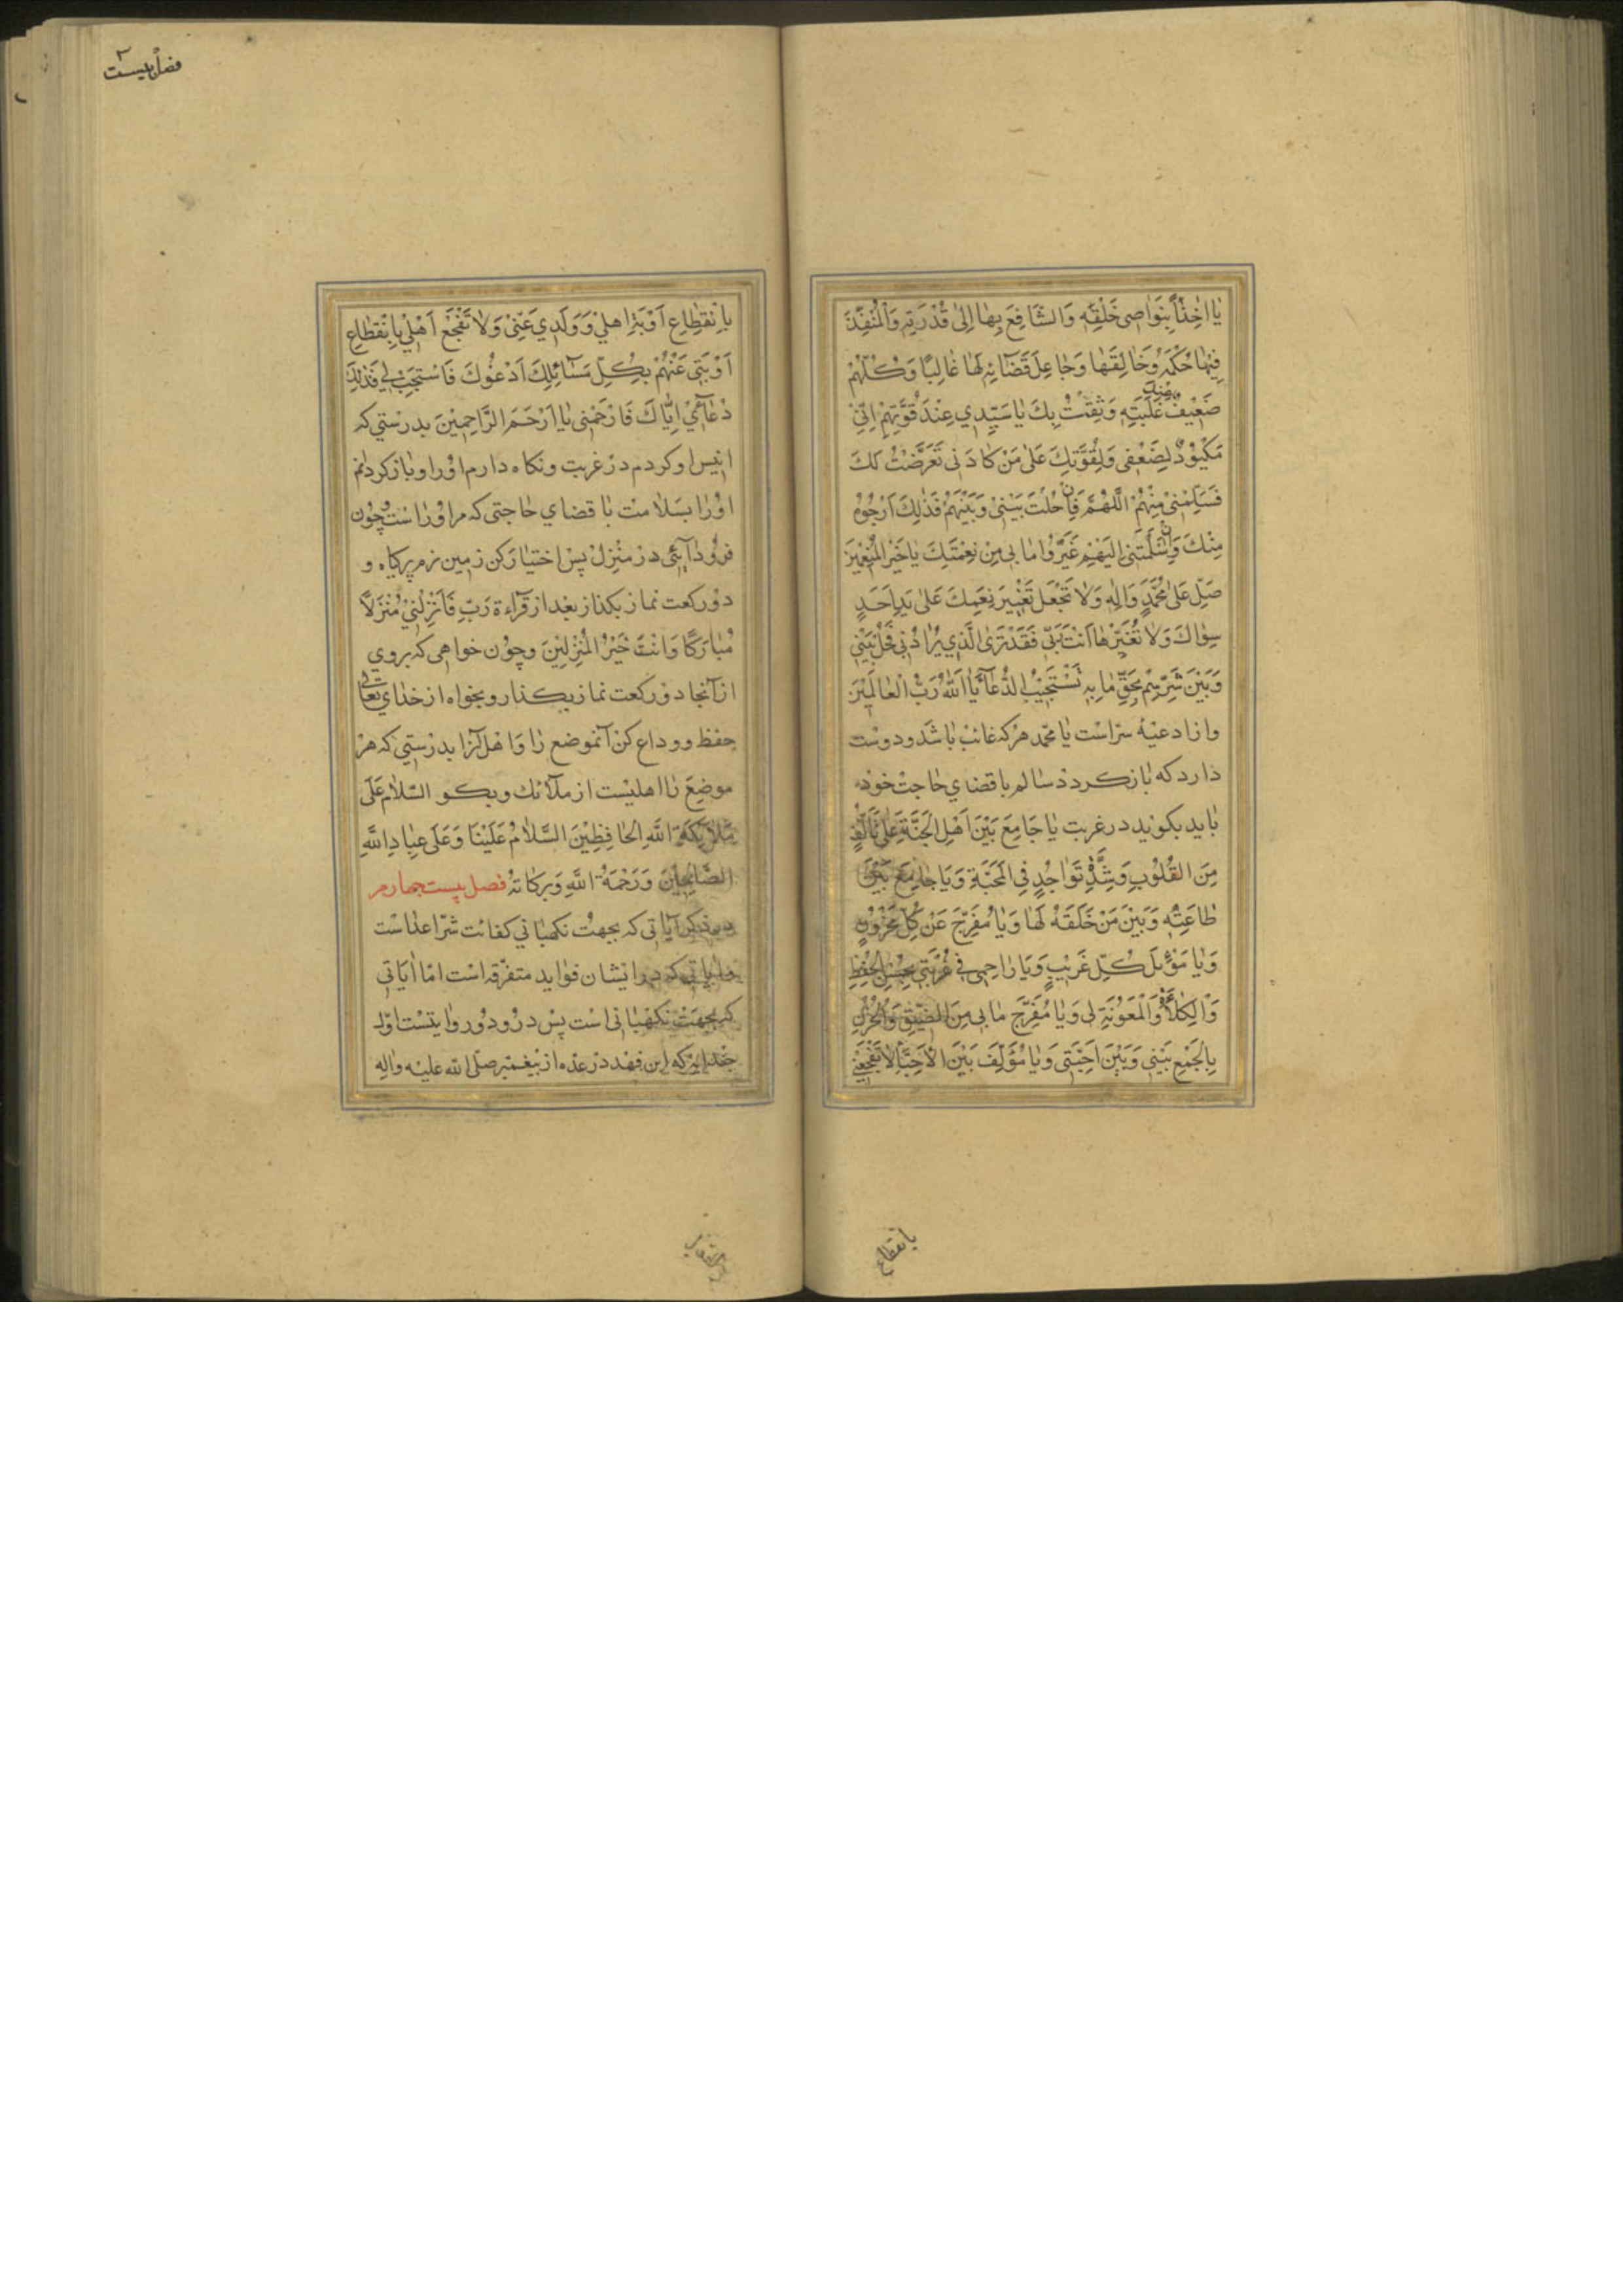 يا اخِذًا بِنَواصى خَلْقِه وَالشّافِعَ بِها اِلى قُدْرَتِه وَالْمُنْفِذَ
فِيْها حُكْمَهُ وَخالِقَها وَجاعِلَ قَضآئِه لَها غالِبًا وَكُلُّهُمْ
ضَعِيْفٌ عِنْدَ غَلَبَتِه وَثِقْتُ بِكَ يا سَيِّدِي عِنْدَ قُوَّتِهِمْ اِنّى
مَكْيُوْدٌ لِضَعْفى وَلِقُوَّتِكَ عَلى مَنْ كادَنى تَعَرَّضْتُ لَكَ
فَسَلِّمْنى مِنْهُمْ اَللّهُمَّ فَاِنْ حُلْتَ بَيْنى وَبَيْنَهُمْ فَذلِكَ اَرْجُوْهُ
مِنْكَ وَاِنْ اَسْلَمْتَنى اِلَيْهِمْ غَيَّرُوا ما بى مِنْ نِعْمَتِكَ يا خَيْرَ الْمُنْعِمِيْنَ
صَلِّ عَلى مُحَمَّدٍ وَالِه وَلا تَجْعَلْ تَغْيِيْرَ نِعَمِكَ عَلى يَدِ اَحَدٍ
سِواكَ وَلا تُغَيِّرْها اَنْتَ بى فَقَدْ تَرَى الَّذي يُرادُ بى فَحُلْ بَيْنى
وَبَيْنَ شَرِّهِمْ بِحَقِّ ما بِه تَسْتَجِيْبُ الدُّعآءَ يا اَللهُ رَبَّ الْعالَمِيْنَ
واز ادعيۀ سرّاست يا محمّد هركه غائب باشد ودوست
دارد كه بازگردد سالم با قضاي حاجت خود
بايد بگويد درغربت يا جامِعَ بَيْنَ اَهْلِ الْجَنَّةِ عَلى تَأَلُّفٍ
مِنَ الْقُلُوْبِ وَشِدَّةِ تَواجُدٍ فِى الْمَحَبَّةِ وَيا جامِعَ بَيْنَ
طاعَتِه وَبَيْنَ مَنْ خَلَقَهُ لَها وَيا مُفَرِّجَ عَنْ كُلِّ مَحْزُوْنٍ
وَيا مَوْئِلَ كُلِّ غَرِيْبٍ وَيا راحِمى فى غُرْبَتى بِحُسْنِ الْحِفْظِ
وَالْكِلأَةِ وَالْمَعُوْنَةِ لى وَيا مُفَرِّجَ ما بى مِنَ الضِّيْقِ وَالْحُزْنِ
بِالْجَمْعِ بَيْنى وَبَيْنَ اَحِبَّتى وَيا مُؤَلِّفَ بَيْنَ الْاَحِبّآءِ لا تَفْجَعْنى
بانقطاع
فصل بيست
بِاِنْقِطاعِ اَوْبَةِ اهلي وَوَلَدي عَنِّى وَلا تَفْجَعْ اَهْلي بِاِنْقِطاعِ
اَوْبَتى عَنْهُمْ بِكُلِّ مَسآئِلِكَ اَدْعُوْكَ فَاسْتَجِبْ لي فَذلِكَ
دُعآئي اِيّاكَ فَارْحَمْنى يا اَرْحَمَ الرَّاحِمِيْنَ بدرستي كه
انيس او كردم در غربت ونگاه دارم او را وبازگردانم
او را بسلامت با قضاي حاجتى كه مر او را است وچون
فرود آيئى در منزل پس اختيار كن زمين نرم پرگياه و
دو ركعت نماز بگذار بعد از قراءة رَبِّ فَاَنْزِلْنِيْ مُنْزَلًا
مُبارَكًا وَاَنْتَ خَيْرُ الْمُنْزِلِيْنَ وچون خواهى كه بروي
از آنجا دو ركعت نماز بگذار وبخواه از خداي تعالى
حفظ ووداع كن آنموضع را واهل آنرا بدرستي كه هر
موضع را اهليست از ملائك وبگو السّلام عَلى
مَلآئِكَةِ اللَّهِ الْحافِظِيْنَ السَّلامُ عَلَيْنا وَعَلى عِبادِ اللَّهِ
الصّالِحِيْنَ وَرَحْمَةُ اللَّهِ وَبَركاتُهُ فصل بيست چهارم
در ذكر آياتى كه بجهت نگهباني كفائت شرّ اعداست
وآياتى كه در ايشان فوايد متفرّقه است امّا آياتى
كه بجهت نگهبانى است پس درو دو روايتست اوّل
ابن فهد در عدّه از پيغمبر صلّى الله عليه واله